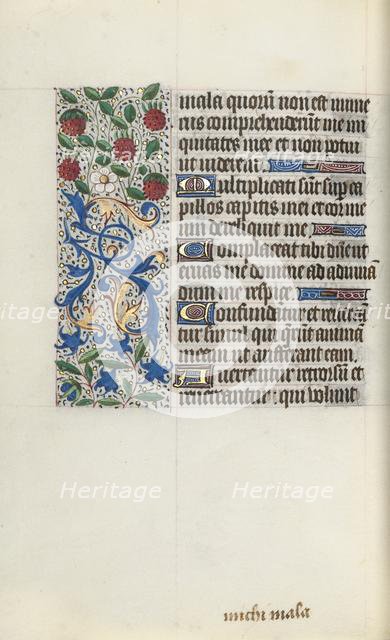 mala quorū non est nume
rus comprehenderūt me ini
quitates mee et non potui
ut viderem
Multiplicati sūt sup ca
pillos capitis mei et cor me
um dereliquit me
Complaceat tibi dñe ut
eruas me domine ad adiuvā
dum me respice
Confundātur et revereā
tur simul qui querūt animā
meam ut auferant eam
Avertantur retrorsū et
revereantur qui volunt
michi mala
Heritage
Heritage
Heritage
Heritage
Heritage